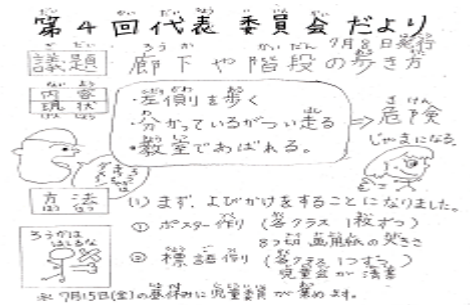 第4回代表委員会だより
7月8日発行
議題 廊下や階段の歩き方
内容
現状
・左側を歩く
・分かっているがつい走る
・教室であばれる。
⇒危険
じゃまになる。
方法
(1) まず、よびかけをすることになりました。
① ポスター作り (各クラス 1枚ずつ)
8つ切 画用紙の大きさ
② 標語作り (各クラス 1つずつ)
児童会が清書
ろうかは
はしるな
※ 7月15日(金)の昼休みに児童委員が集めます。